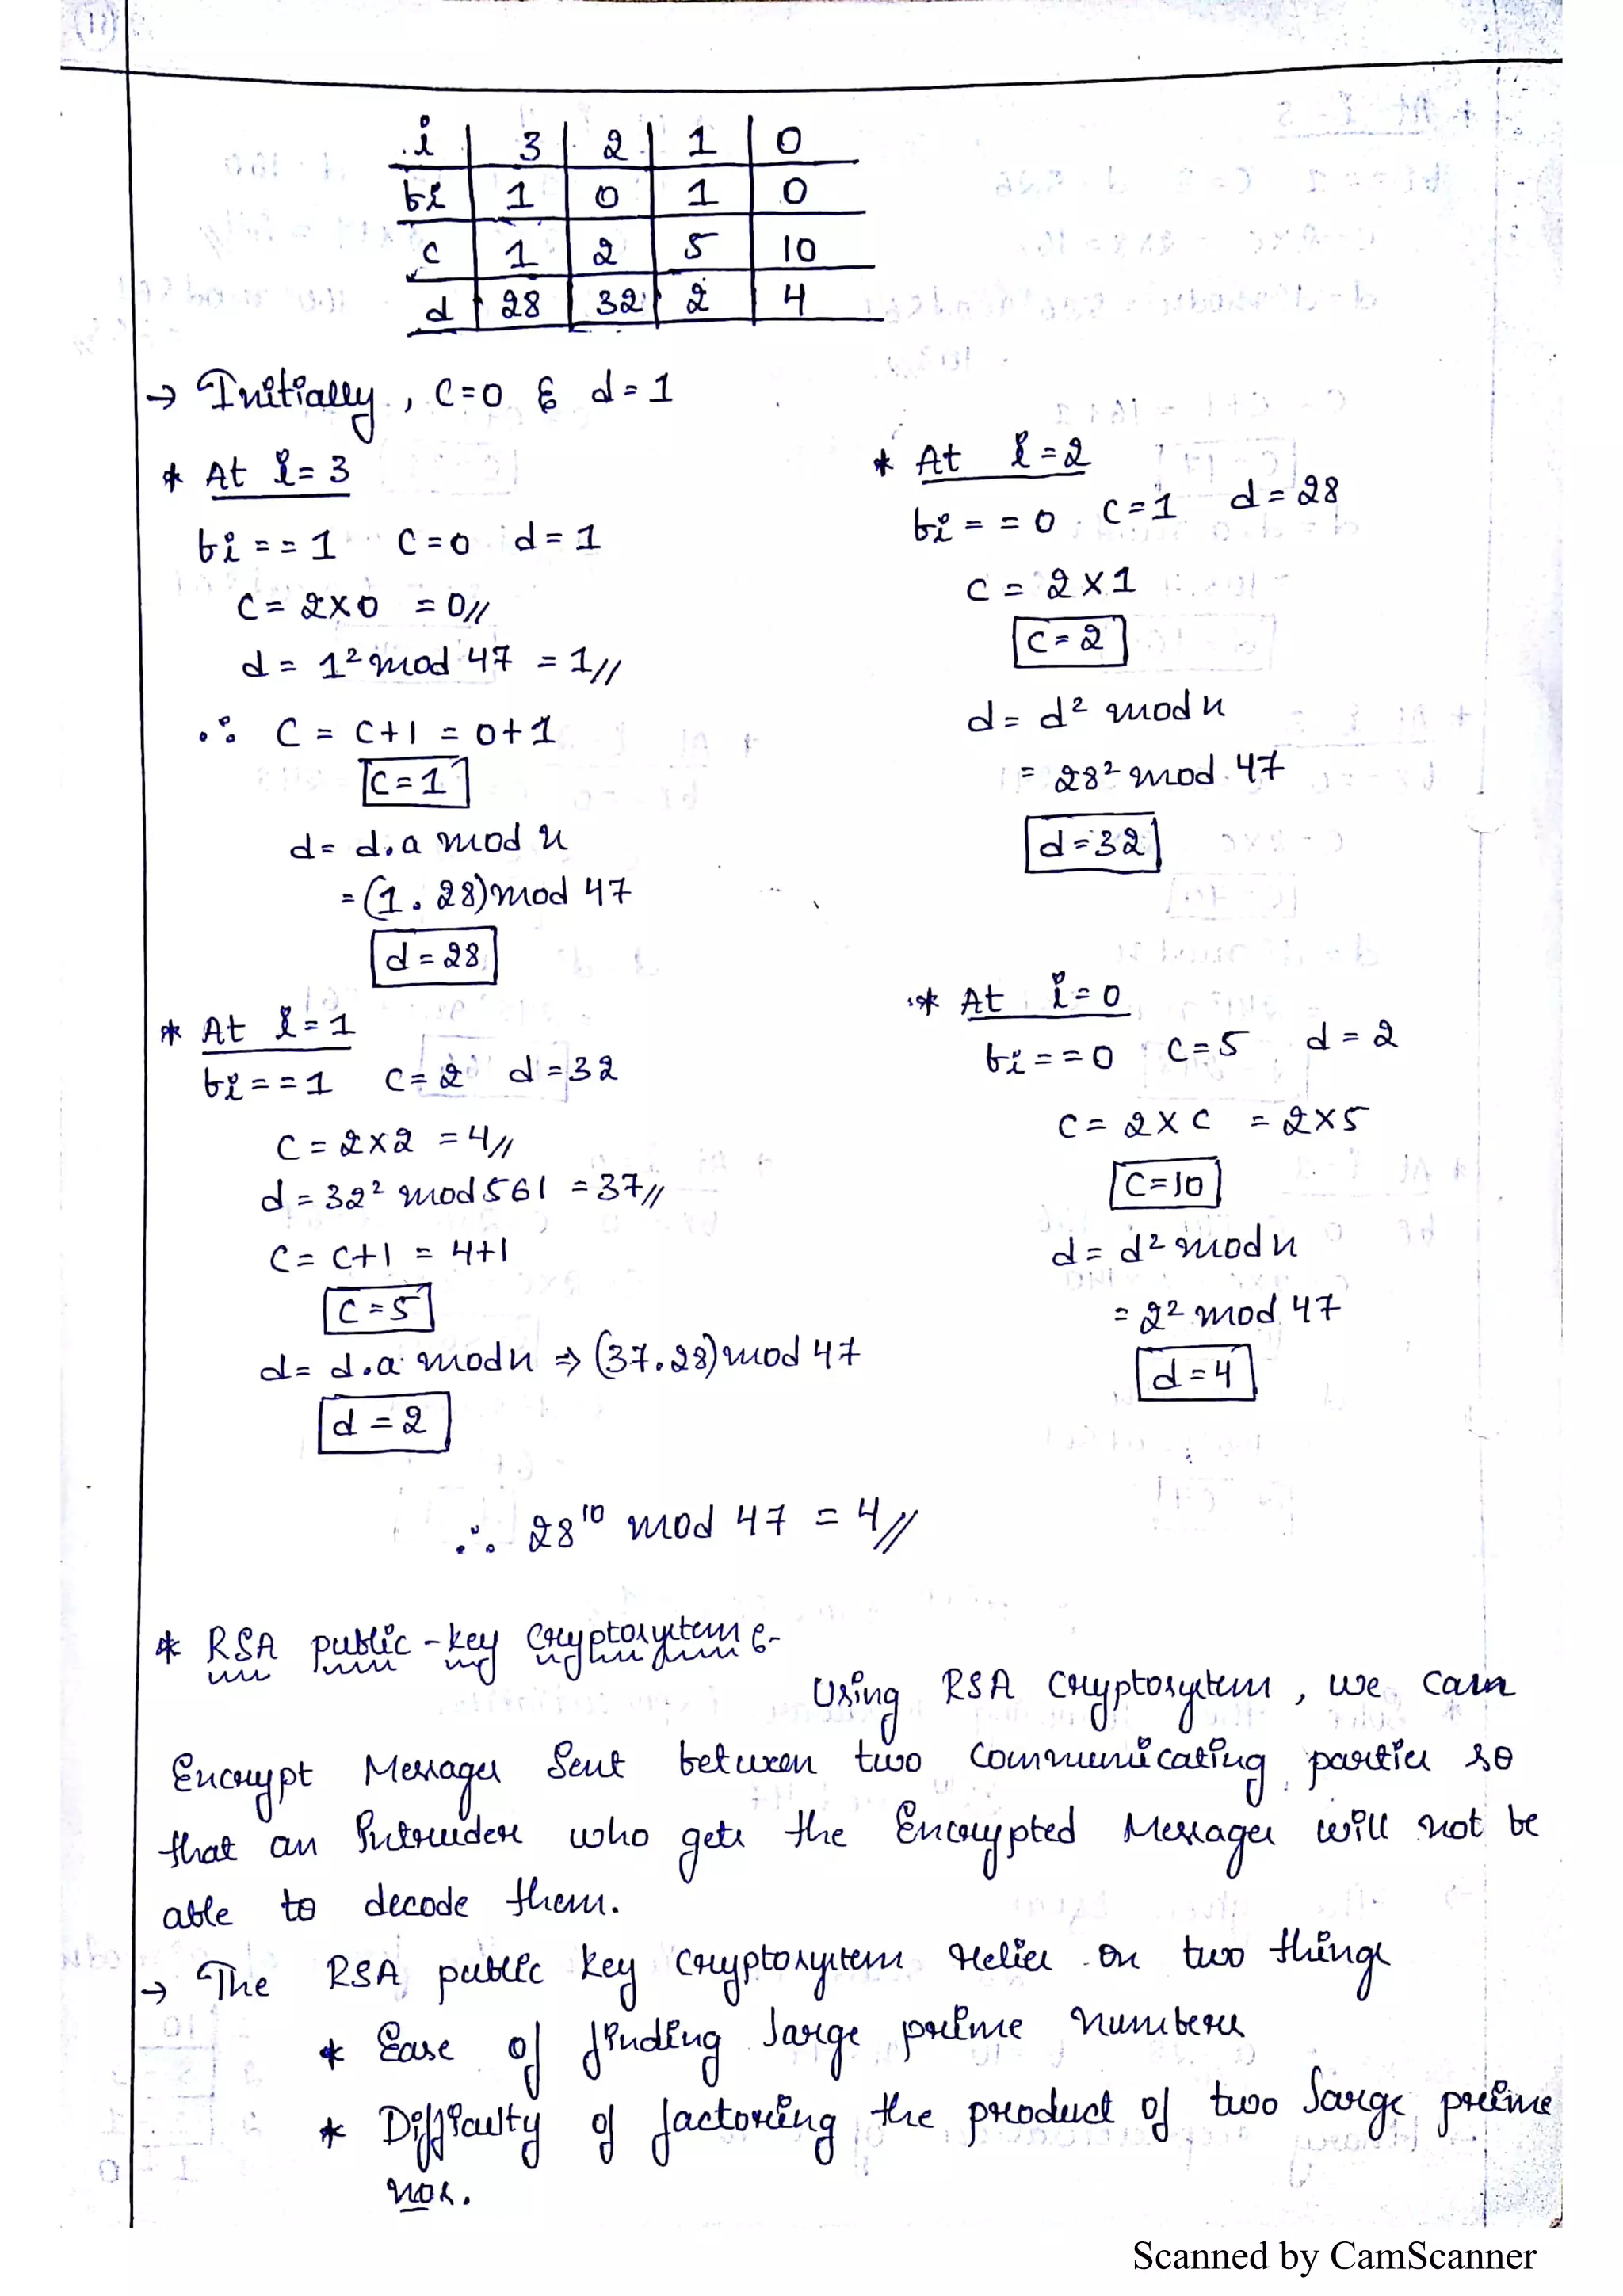 (18)
i 3 2 1 0
bi 1 0 1 0
c 1 2 5 10
d 28 32 2 4
→ Initially, C=0 & d=1
* At i=3
bi==1 C=0 d=1
C= 2X0 =0//
d= 1² mod 47 =1//
∴ C = C+1 = 0+1
C=1
d= d.a mod n
=(1.28)mod 47
d=28
* At i=2
bi==0 C=1 d=28
C= 2X1
C=2
d= d² mod n
= 28² mod 47
d=32
* At i=1
bi==1 C=2 d=32
C=2x2 =4//
d=32² mod 561 =37//
C= C+1 = 4+1
C=5
d= d.a mod n ⇒ (37.28)mod 47
d=2
* At i=0
bi==0 C=5 d=2
C= 2XC =2X5
C=10
d= d² mod n
= 2² mod 47
d=4
∴ 28¹⁰ mod 47 = 4//
* RSA public-key Cryptosystem :-
Using RSA Cryptosytem, we can
Encrypt Messages Sent between two Communicating parties so
that an Intruder who gets the Encrypted Messages will not be
able to decode them.
→ The RSA public key cryptosystem relies on two things
* Ease of finding large prime numbers
* Difficulty of factoring the product of two large prime
nos.
Scanned by CamScanner